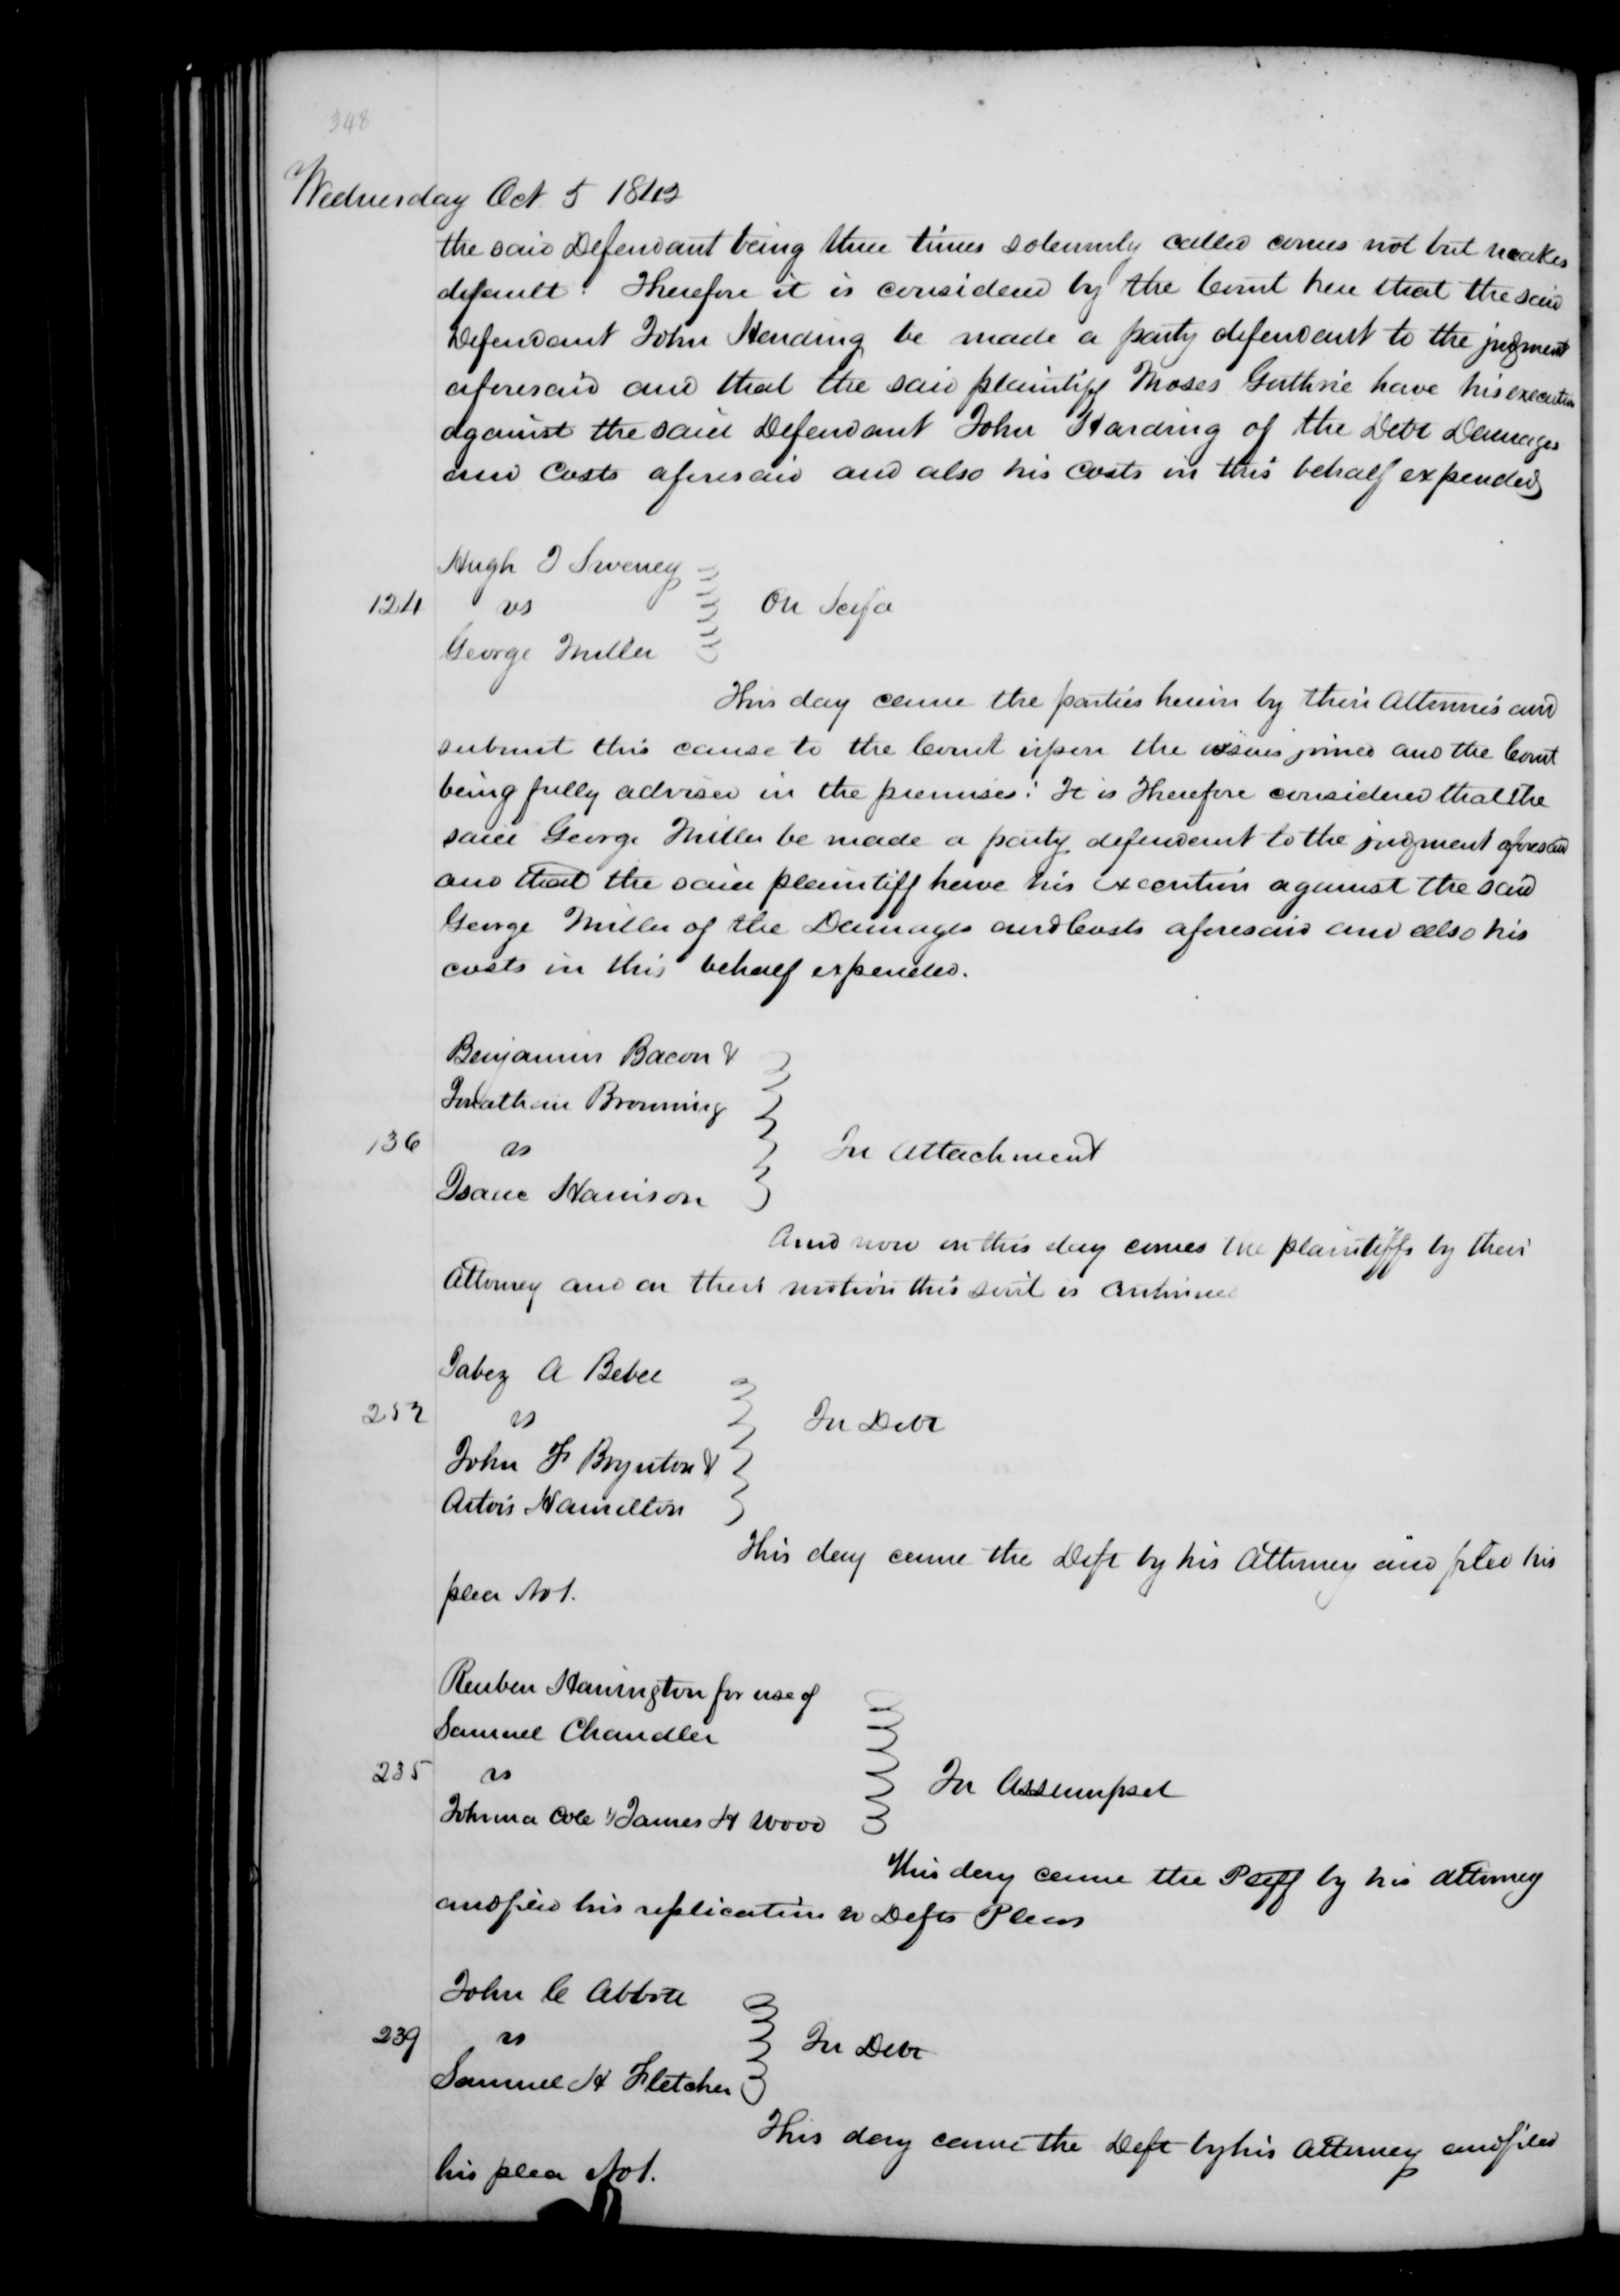 348
Wednesday Oct 5 1842
the said Defendant being three times solemnly called comes not but makes
default: Therefore it is considered by the Court here that the said
Defendant John Harding be made a party defendant to the judgment
aforesaid and that the said plaintiff Moses Guthrie have his execution
against the said Defendant John Harding of the Debt Damages
and Costs aforesaid and also his costs in this behalf expended
Hugh T Sweney
124 vs On Scifa
George Miller
This day came the parties herein by their Attornies and
submit this cause to the Court upon the issues joined and the Court
being fully advised in the premises: It is Therefore considered that the
said George Miller be made a party defendant to the judgment aforesaid
and that the said plaintiff have his execution against the said
George Miller of the Damages and Costs aforesaid and also his
costs in this behalf expended.
Benjamin Bacon &
Jonathan Browning
136 vs In Attachment
Isaac Harrison
And now on this day comes the plaintiffs by their
Attorney and on their motion this suit is continued
Jabez A Bebee
252 vs In Debt
John F Boynton &
Artois Hamilton
This day came the Deft by his Attorney and filed his
plea No 1.
Reuben Harrington for use of
Samuel Chandler
235 vs In Assumpset
Cole & James H Wood
This day came the Plff by his attorney
and filed his replication to Defts Pleas
John C Abbott
239 vs In Debt
Samuel H Fletcher
This day came the Deft by his Attorney and filed
his plea No 1.